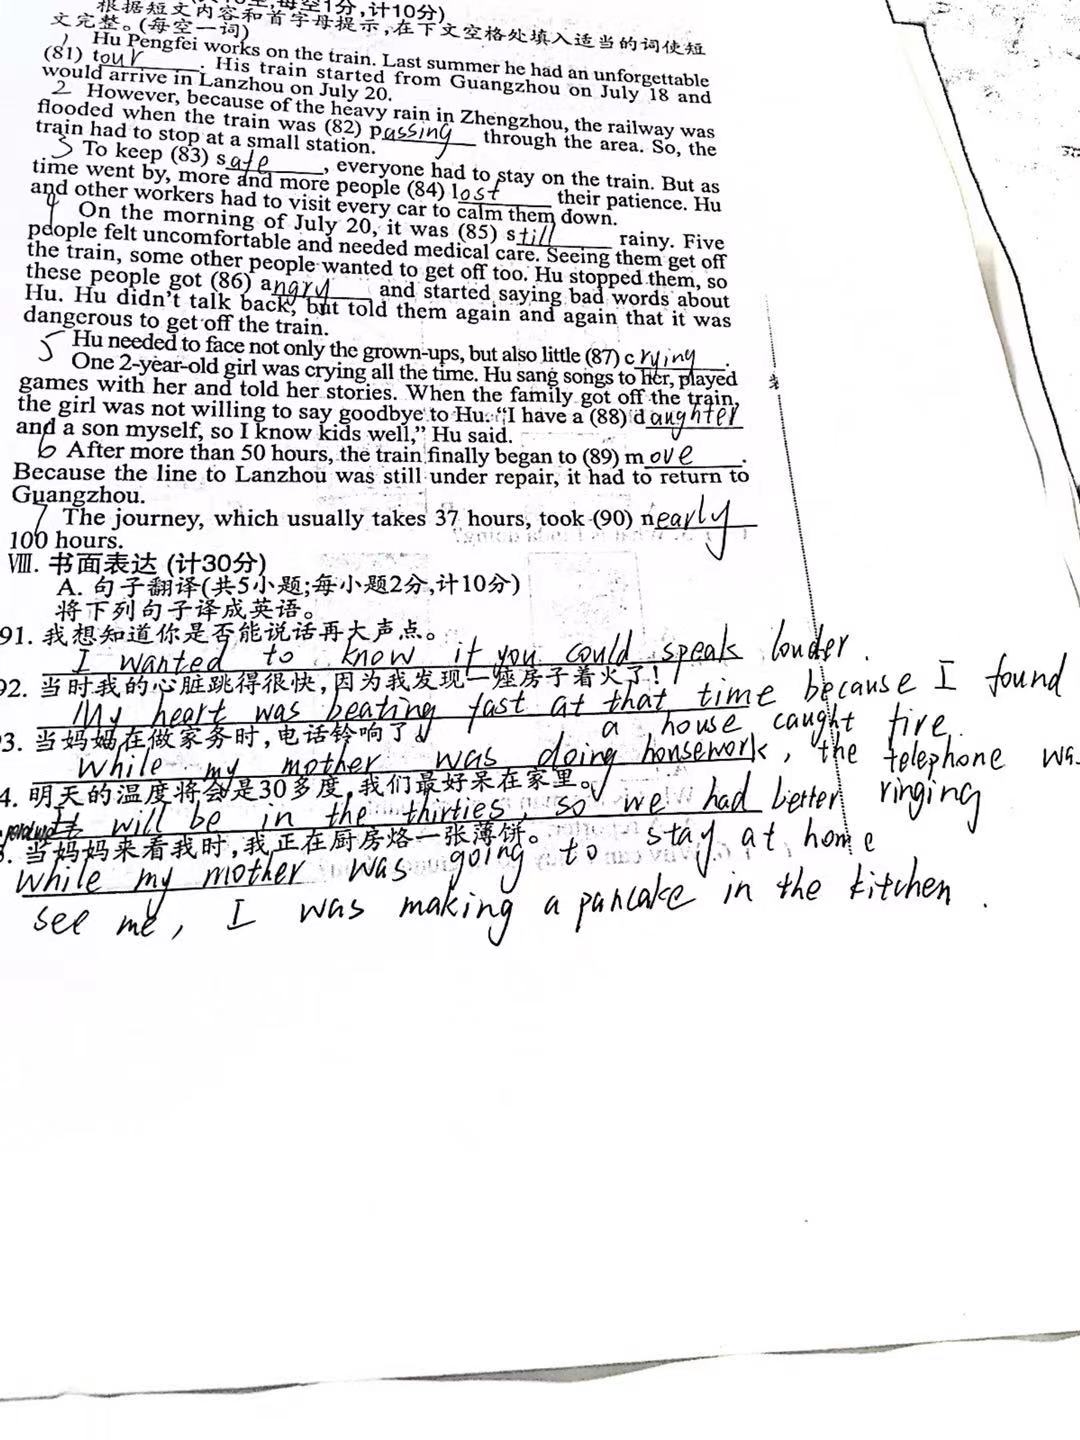 每空1分,计10分)
根据短文内容和首字母提示,在下文空格处填入适当的词使短
文完整。(每空一词)
1 Hu Pengfei works on the train. Last summer he had an unforgettable
(81) tour. His train started from Guangzhou on July 18 and
would arrive in Lanzhou on July 20.
2 However, because of the heavy rain in Zhengzhou, the railway was
flooded when the train was (82) passing through the area. So, the
train had to stop at a small station.
3 To keep (83) safe, everyone had to stay on the train. But as
time went by, more and more people (84) lost their patience. Hu
and other workers had to visit every car to calm them down.
4 On the morning of July 20, it was (85) still rainy. Five
people felt uncomfortable and needed medical care. Seeing them get off
the train, some other people wanted to get off too. Hu stopped them, so
these people got (86) angry and started saying bad words about
Hu. Hu didn't talk back, but told them again and again that it was
dangerous to get off the train.
5 Hu needed to face not only the grown-ups, but also little (87) crying.
One 2-year-old girl was crying all the time. Hu sang songs to her, played
games with her and told her stories. When the family got off the train,
the girl was not willing to say goodbye to Hu. "I have a (88) daughter
and a son myself, so I know kids well," Hu said.
6 After more than 50 hours, the train finally began to (89) move.
Because the line to Lanzhou was still under repair, it had to return to
Guangzhou.
7 The journey, which usually takes 37 hours, took (90) nearly
100 hours.
Ⅷ. 书面表达 (计30分)
A. 句子翻译(共5小题;每小题2分,计10分)
将下列句子译成英语。
91. 我想知道你是否能说话再大声点。
I wanted to know if you could speak louder.
92. 当时我的心脏跳得很快,因为我发现一座房子着火了!
My heart was beating fast at that time because I found
a house caught fire.
3. 当妈妈在做家务时,电话铃响了。
While my mother was doing housework, the telephone was
ringing
4. 明天的温度将会是30多度,我们最好呆在家里。
It will be in the thirties, so we had better
stay at home
5. 当妈妈来看我时,我正在厨房烙一张薄饼。
While my mother was going to
see me, I was making a pancake in the kitchen.